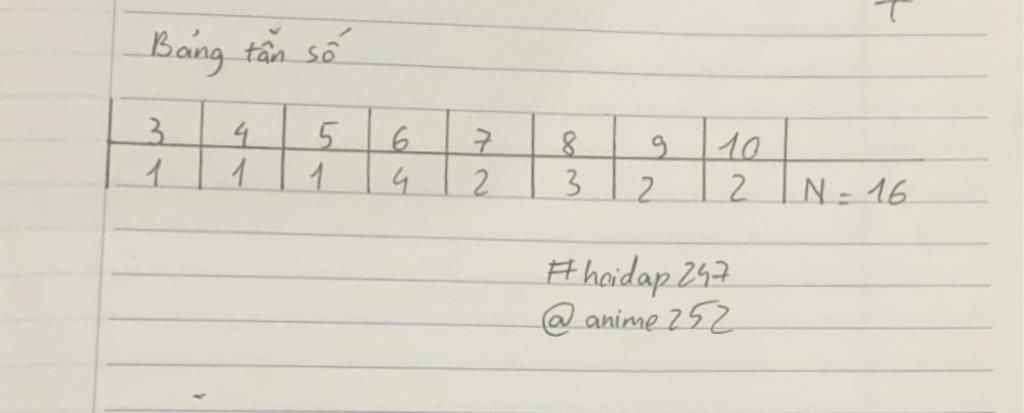 Bảng tần số
3 4 5 6 7 8 9 10
1 1 1 4 2 3 2 2 N = 16
#hoidap247
@anime252